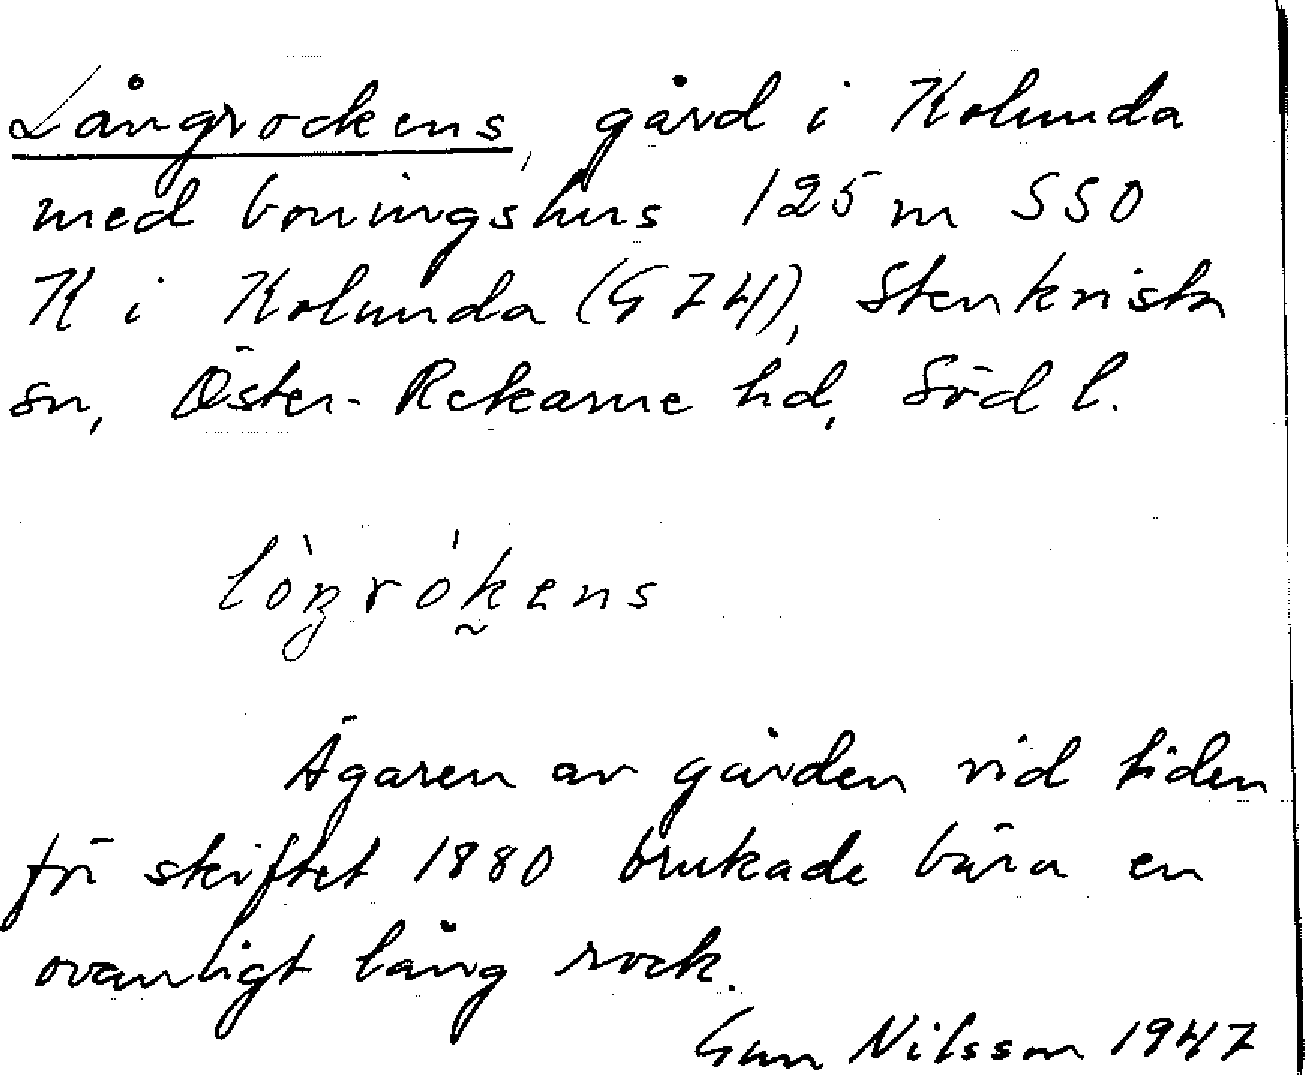 Långrockens, gård i Kolunda
med boningshus 125 m SSO
K i Kolunda (G 74), Stenkvista
sn, Öster-Rekarne hd, Söd l.
lòŋrókens
Ägaren av gården vid tiden
för skiftet 1880 brukade bära en
ovanligt lång rock.
Gun Nilsson 1947